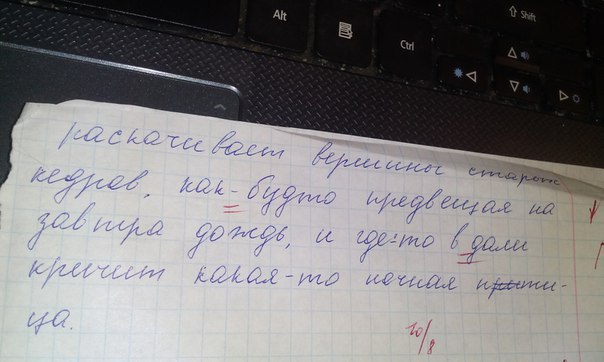 Alt
Shift
Ctrl
раскачивает вершины старых
кедров, как-будто предвещая на
завтра дождь, и где-то вдали
кричит какая-то ночная пти-
ца.
10/8